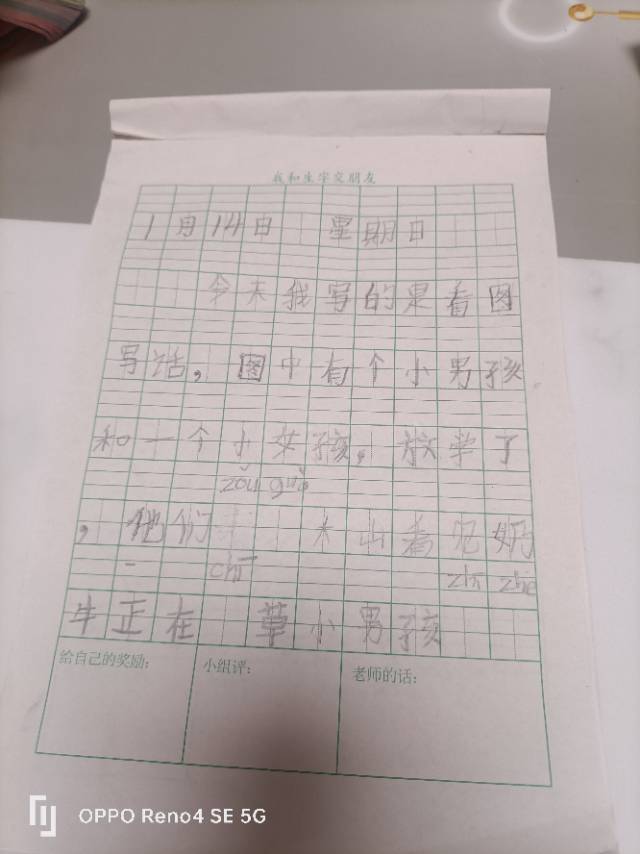 我和生字交朋友
1月14日 星期日
今天我写的是看图
写话，图中有个小男孩
和一个小女孩，放学了
zǒu guò
，他们 来出看见奶
chī zhǐ zhe
牛正在 草小男孩
给自己的奖励：
小组评：
老师的话：
OPPO Reno4 SE 5G